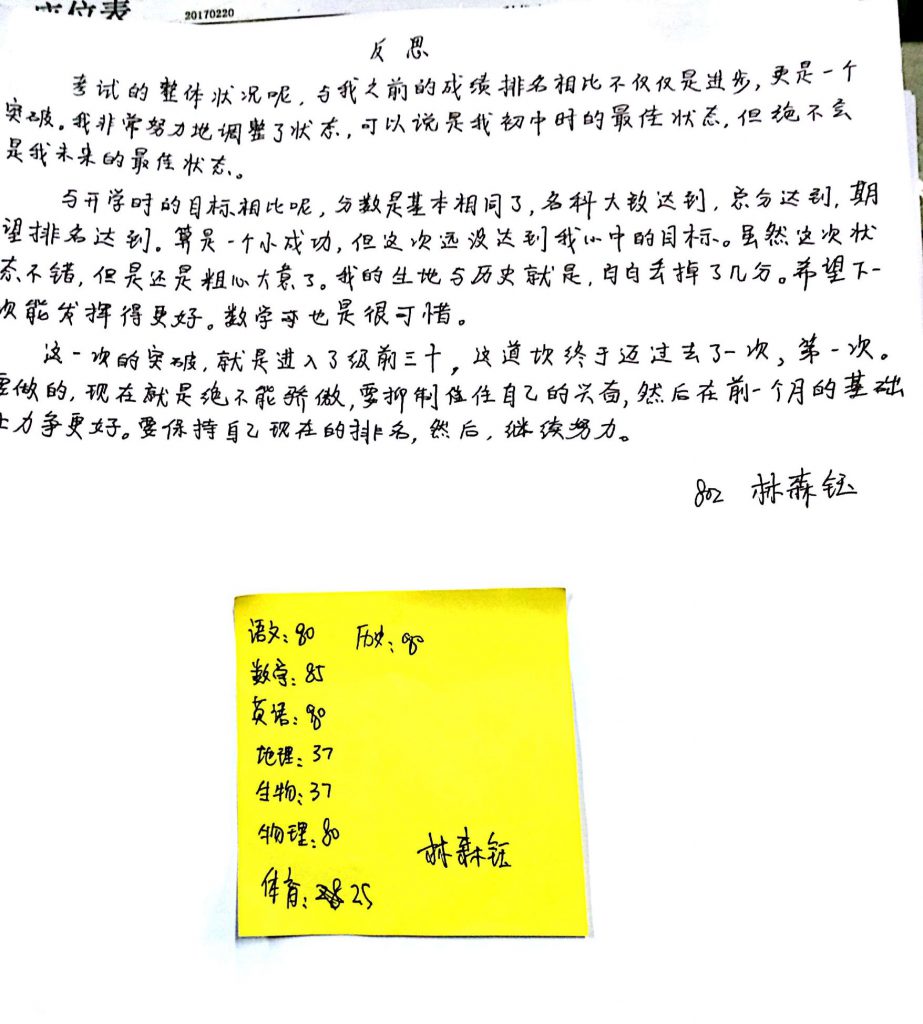 座位表
20170220
反思
考试的整体状况呢，与我之前的成绩排名相比不仅仅是进步，更是一个
突破。我非常努力地调整了状态，可以说是我初中时的最佳状态，但绝不会
是我未来的最佳状态。
与开学时的目标相比呢，分数是基本相同了，各科大致达到，总分达到，期
望排名达到。算是一个小成功，但这次还没达到我心中的目标。虽然这次状
态不错，但是还是粗心大意了。我的生地与历史就是，白白丢掉了几分。希望下一
次能发挥得更好。数学 也是很可惜。
这一次的突破，就是进入了级前三十，这道坎终于迈过去了一次，第一次。
要做的，现在就是绝不能骄傲，要抑制住自己的兴奋，然后在前一个月的基础
上力争更好。要保持自己现在的排名，然后，继续努力。
802 林森钰
语文：80 历史：90
数学：85
英语：90
地理：37
生物：37
物理：80
体育：25
林森钰